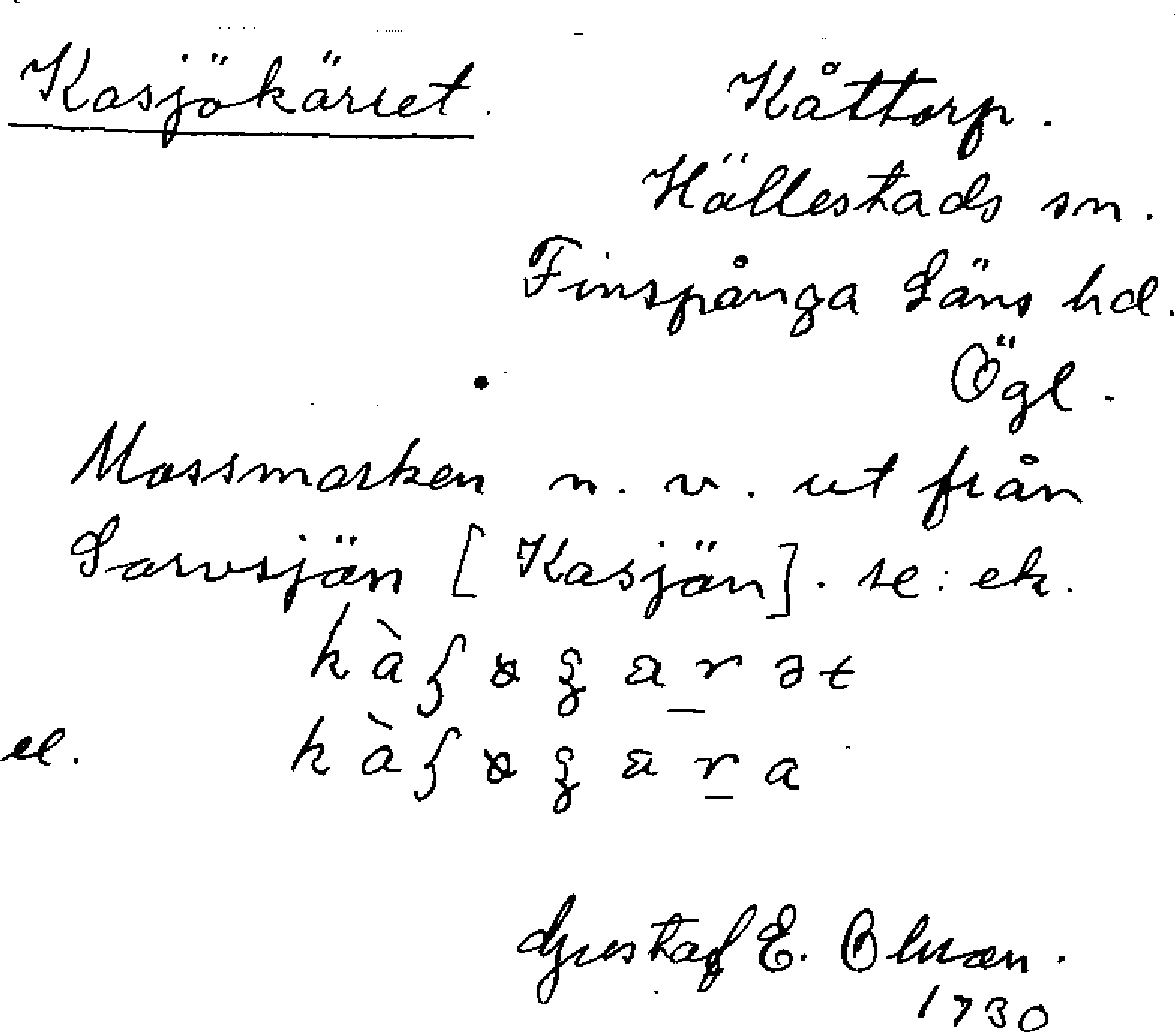 Kasjökärret.
Kåttorp.
Hällestads sn.
Finspånga Läns hd.
Ögl.
Mossmarken n. v. ut från
Sarvsjön [Kasjön]. se: ek.
el.
Gustaf E. Olsson.
1930